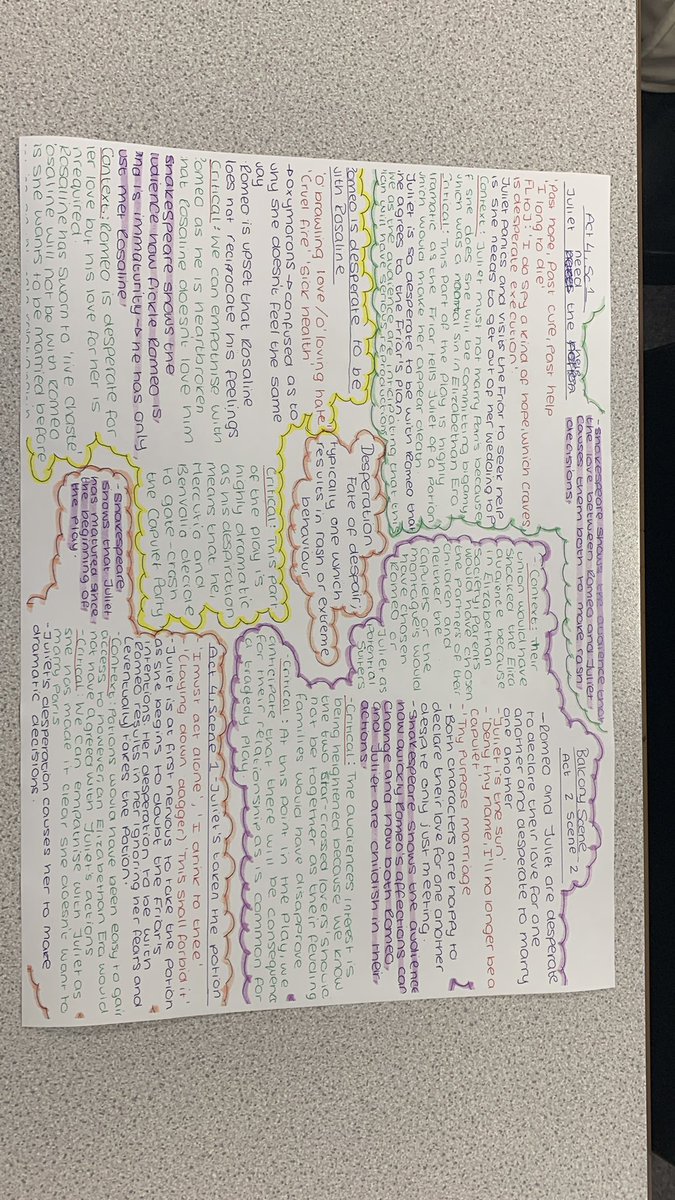 Desperation
Fate of despair,
typically one which
results in rash or extreme
behaviour
Act 4 Sc 1
Juliet need the
'Past hope, Past cure, Past help
'I long to die'
FL+OJ: 'I do spy a kind of hope, which craves
as desperate execution'
Juliet panics and visits the Friar to seek help
as she needs to get out of her wedding to P
Context: Juliet must not marry Paris because
if she does she will be committing bigamy
which was a mortal sin in Elizabethan Era
Critical: This part of the play is highly
dramatic as the Friar tells Juliet of a potion
which would make her appear dead.
Juliet is so desperate to be with Romeo that
she agrees to the Friar's plan.
we as the audience are anticipating that this
plan will have serious repercussions
-Shakespeare shows the audience that
the love between Romeo and Juliet
causes them both to make rash
decisions.
Balcony Scene - 2
Act 2 Scene 2
-Romeo and Juliet are desperate
to declare their love for one
another and desperate to marry
one another
-'Juliet is the sun'
-'Deny thy name, I'll no longer be a
capulet'
-'Thy Purpose marriage'
-Both characters are happy to
declare their love for one another
despite only just meeting.
-Shakespeare shows the audience
how quickly Romeo's affections can
change and how both Romeo,
and Juliet are childish in their
actions.
-Context: Their
union would have
shocked the Eliza
audience because
in Elizabethan
society, Parents
would have chosen
the partners of their
children and
neither the
Capulets or the
Montague's would
have chosen
Romeo and
Juliet as
Potential
Suitors
-Critical: The audiences interest is
being heightened because we know
the two star-crossed lovers should
not be together as their feuding
families would have disapprove
-Critical: At this point in the play, we
anticipate that there will be consequence
for their relationship as is common for
a tragedy play
Romeo is desperate to be
with Rosaline
'O brawling love/O loving hate
'Cruel fire' 'sick health'
oxymorons → confused as to
why she doesn't feel the same
way
-Romeo is upset that Rosaline
does not reciprocate his feelings
Critical: We can empathise with
Romeo as he is heartbroken
that Rosaline doesn't love him
Shakespeare shows the
audience how fickle Romeo is
and is immaturity - he has only
just met Rosaline
Context: Romeo is desperate for
her love but his love for her is
unrequired.
Rosaline has sworn to 'live chaste'
Rosaline will not be with Romeo
as she wants to be married before
Critical: This part
of the play is
highly dramatic
as his desperation
means that he,
Mercutio and
Benvolio decide
to gate-crash
the Capulet Party
Act 4 scene 1 Juliet's taken the potion
'I must act alone', 'I drink to thee'
'(Laying down dagger) 'This shall forbid it'
-Juliet is at first nervous to take the potion
as she begins to doubt the Friar's
intentions. Her desperation to be with
Romeo results in her ignoring her fears and
(eventually) takes the potion.
-Context: Potions would have been easy to gain
access to however an Elizabethan Era would
not have agreed with Juliet's actions
-Critical: we can empathise with Juliet as
she has made it clear she doesn't want to
marry Paris
-Juliet's desperation causes her to make
dramatic decisions.
-Shakespeare
shows that Juliet
has matured since
the beginning of
the play